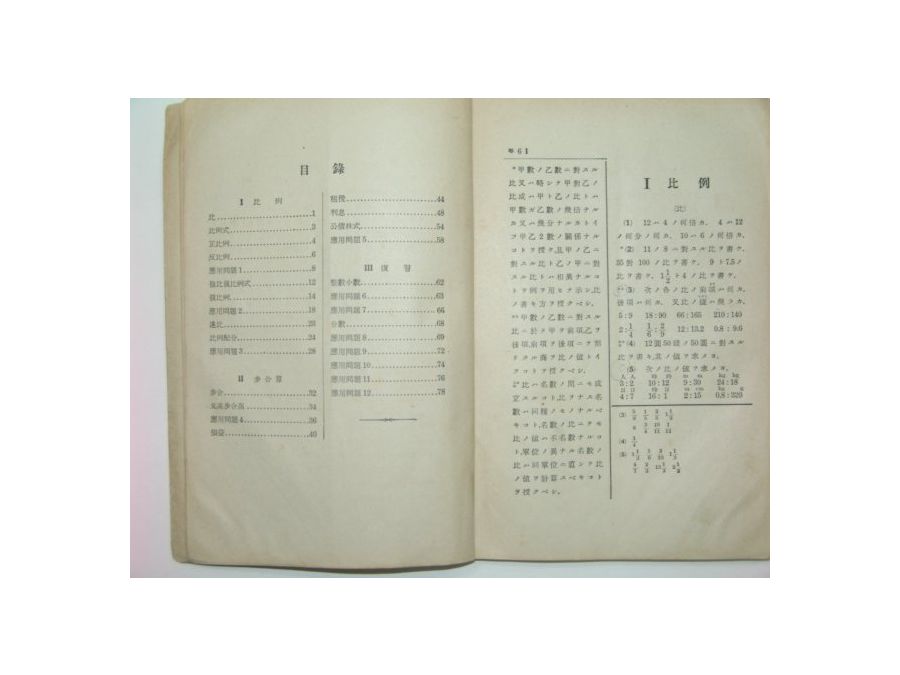 目錄
I 比例
比 1
比例式 3
正比例 4
反比例 6
應用問題1 8
複比複比例式 12
複比例 14
應用問題2 18
連比 23
比例配分 24
應用問題3 28
II 步合算
步合 32
應用問題4 36
損益 40
租稅 44
利息 48
公債株式 54
應用問題5 58
III 復習
整數小數 62
應用問題6 63
應用問題7 66
分數 68
應用問題8 69
應用問題9 72
應用問題10 74
應用問題11 76
應用問題12 78
尋 6 1
*甲數ノ乙數ニ對スル
比又ハ時シテ甲對乙ノ
比或ハ甲ト乙ノ比トハ
甲數ガ乙數ノ幾倍ナル
カ又ハ幾分ナルカトイ
フ甲乙2數ノ關係ナル
コトヲ授ケ,且甲ノ乙ニ
對スル比ト乙ノ甲ニ對
スル比トハ相異ナルコ
トヲ例ヲ用ヒテ示シ,比
ノ書キ方ヲ授クベシ。
**甲數ノ乙數ニ對スル
比ニ於テ甲ヲ前項,乙ヲ
後項,前項ヲ後項ニテ割
リタル商ヲ比ノ値トイ
フコトヲ授クベシ。
比ハ名數ノ間ニモ成
立スルコト,比ヲナス名
數ハ同種ノモノナルベ
キコト,名數ノ比ニテモ
比ノ値ハ不名數ナルコ
ト,單位ノ異ナル名數ノ
比ハ同單位ニ直シテ比
ノ値ヲ計算スベキコト
ヲ授クベシ。
I 比例
(比)
(1) 12ハ4ノ何倍カ。 4ハ12
ノ何分ノ何カ。 10ハ6ノ何倍カ。
*(2) 11ノ8ニ對スル比ヲ書ケ。
35對100ノ比ヲ書ケ。 9ト7.5ノ
比ヲ書ケ。 1 1/2ト4ノ比ヲ書ケ。
**(3) 次ノ各ノ比ノ前項ハ何カ。
後項ハ何カ。 又比ノ値ハ幾ラカ。
5:9 18:90 66:165 210:140
2:1/4 1/6:2/9 12:13.2 0.8:9.6
(4) 12圓50錢ノ50圓ニ對スル
比ヲ書キ,其ノ値ヲ求メヨ。
(5) 次ノ比ノ値ヲ求メヨ。
人 人 時 時 m m kg kg
3:2 10:12 9:30 24:18
日 日 時 時 m m kg g
4:7 16:1 2:15 0.8:320
(3) 5/9 1/5 2/5 1 1/2
(4) 1/4